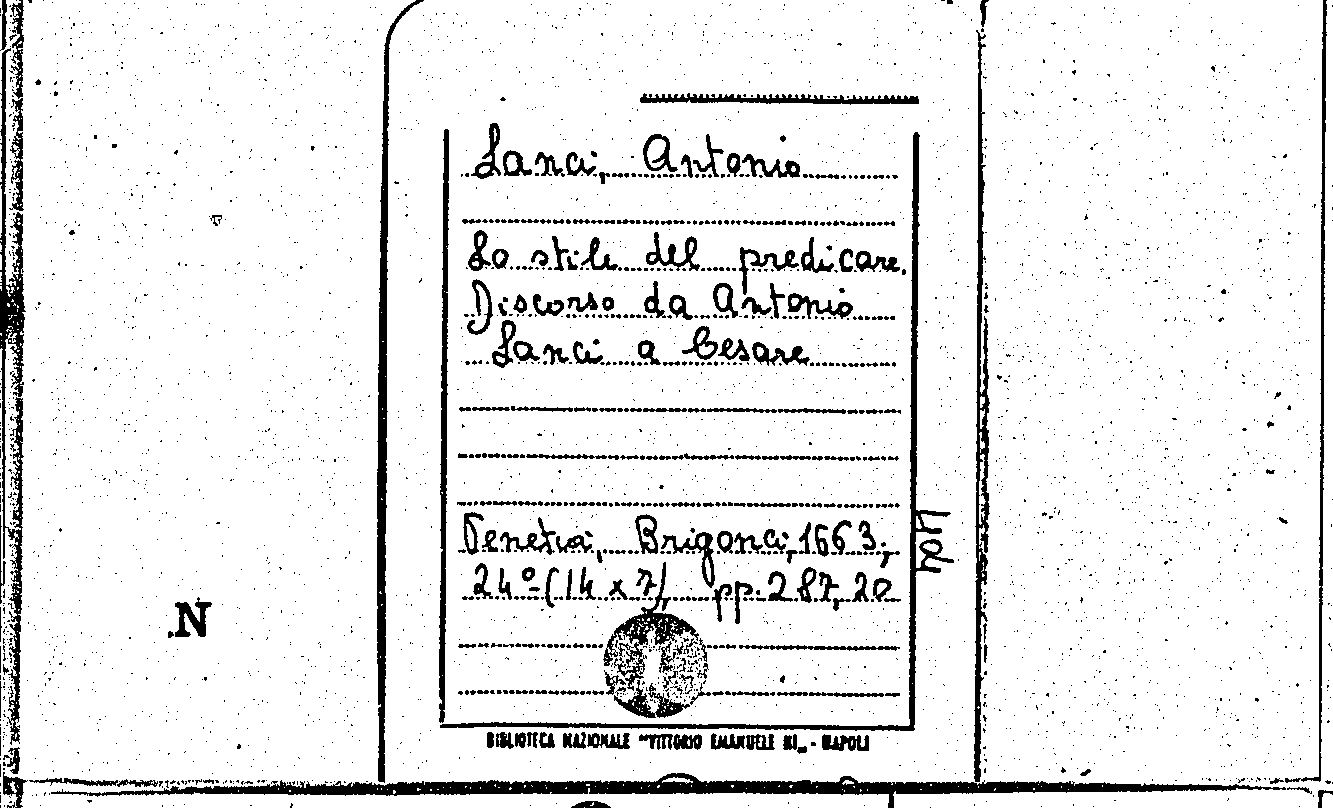 Lanci, Antonio
Lo stile del predicare.
Discorso da Antonio
Lanci a Cesare
Venetia, Brigonci, 1663;
24º (14 x 7), pp. 287, 20
N
BIBLIOTECA NAZIONALE "VITTORIO EMANUELE III" - NAPOLI